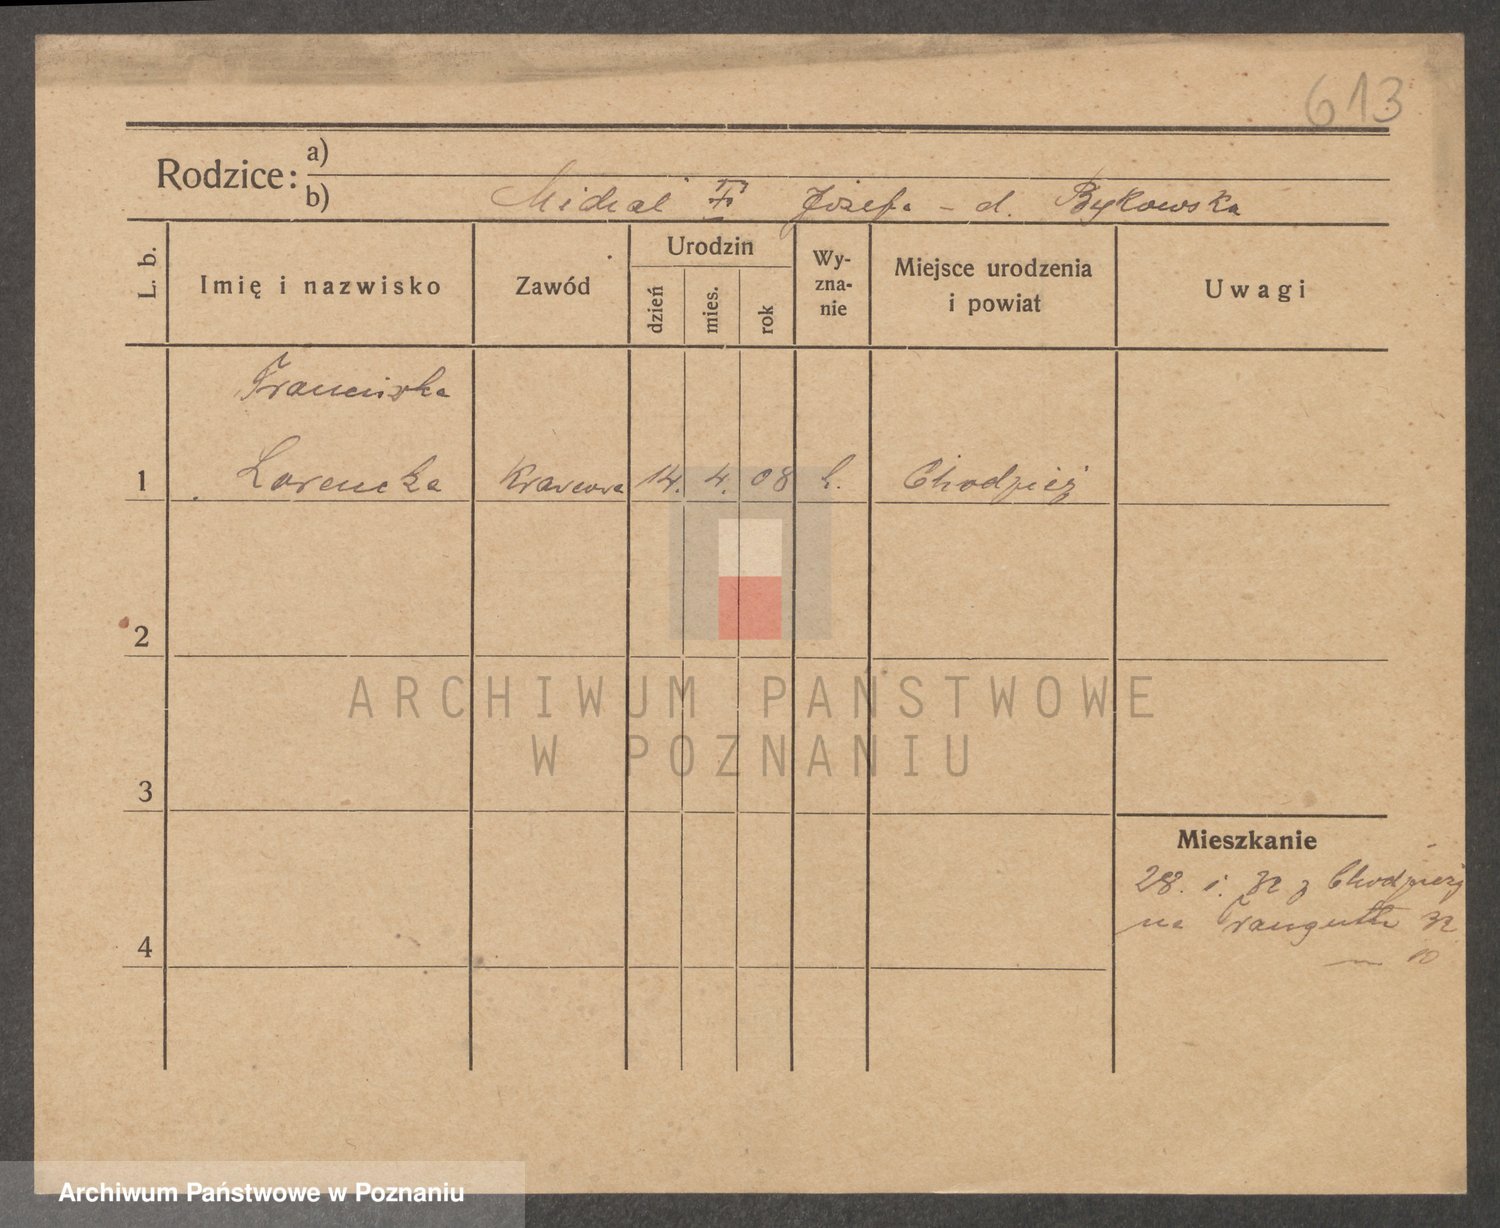 613
Rodzice:
a)
b) Michał Józefa - d. Bykowska
L. b.
Imię i nazwisko
Zawód
Urodzin
dzień
mies.
rok
Wy-
zna-
nie
Miejsce urodzenia
i powiat
Uwagi
Franciszka
1 Lorencka Krawcowa 14. 4. 08 Chodzież
2
3
4
Mieszkanie
28. 1. 32 z Chodzieży
na Trauguta 32
10
ARCHIWUM PAŃSTWOWE
W POZNANIU
Archiwum Państwowe w Poznaniu